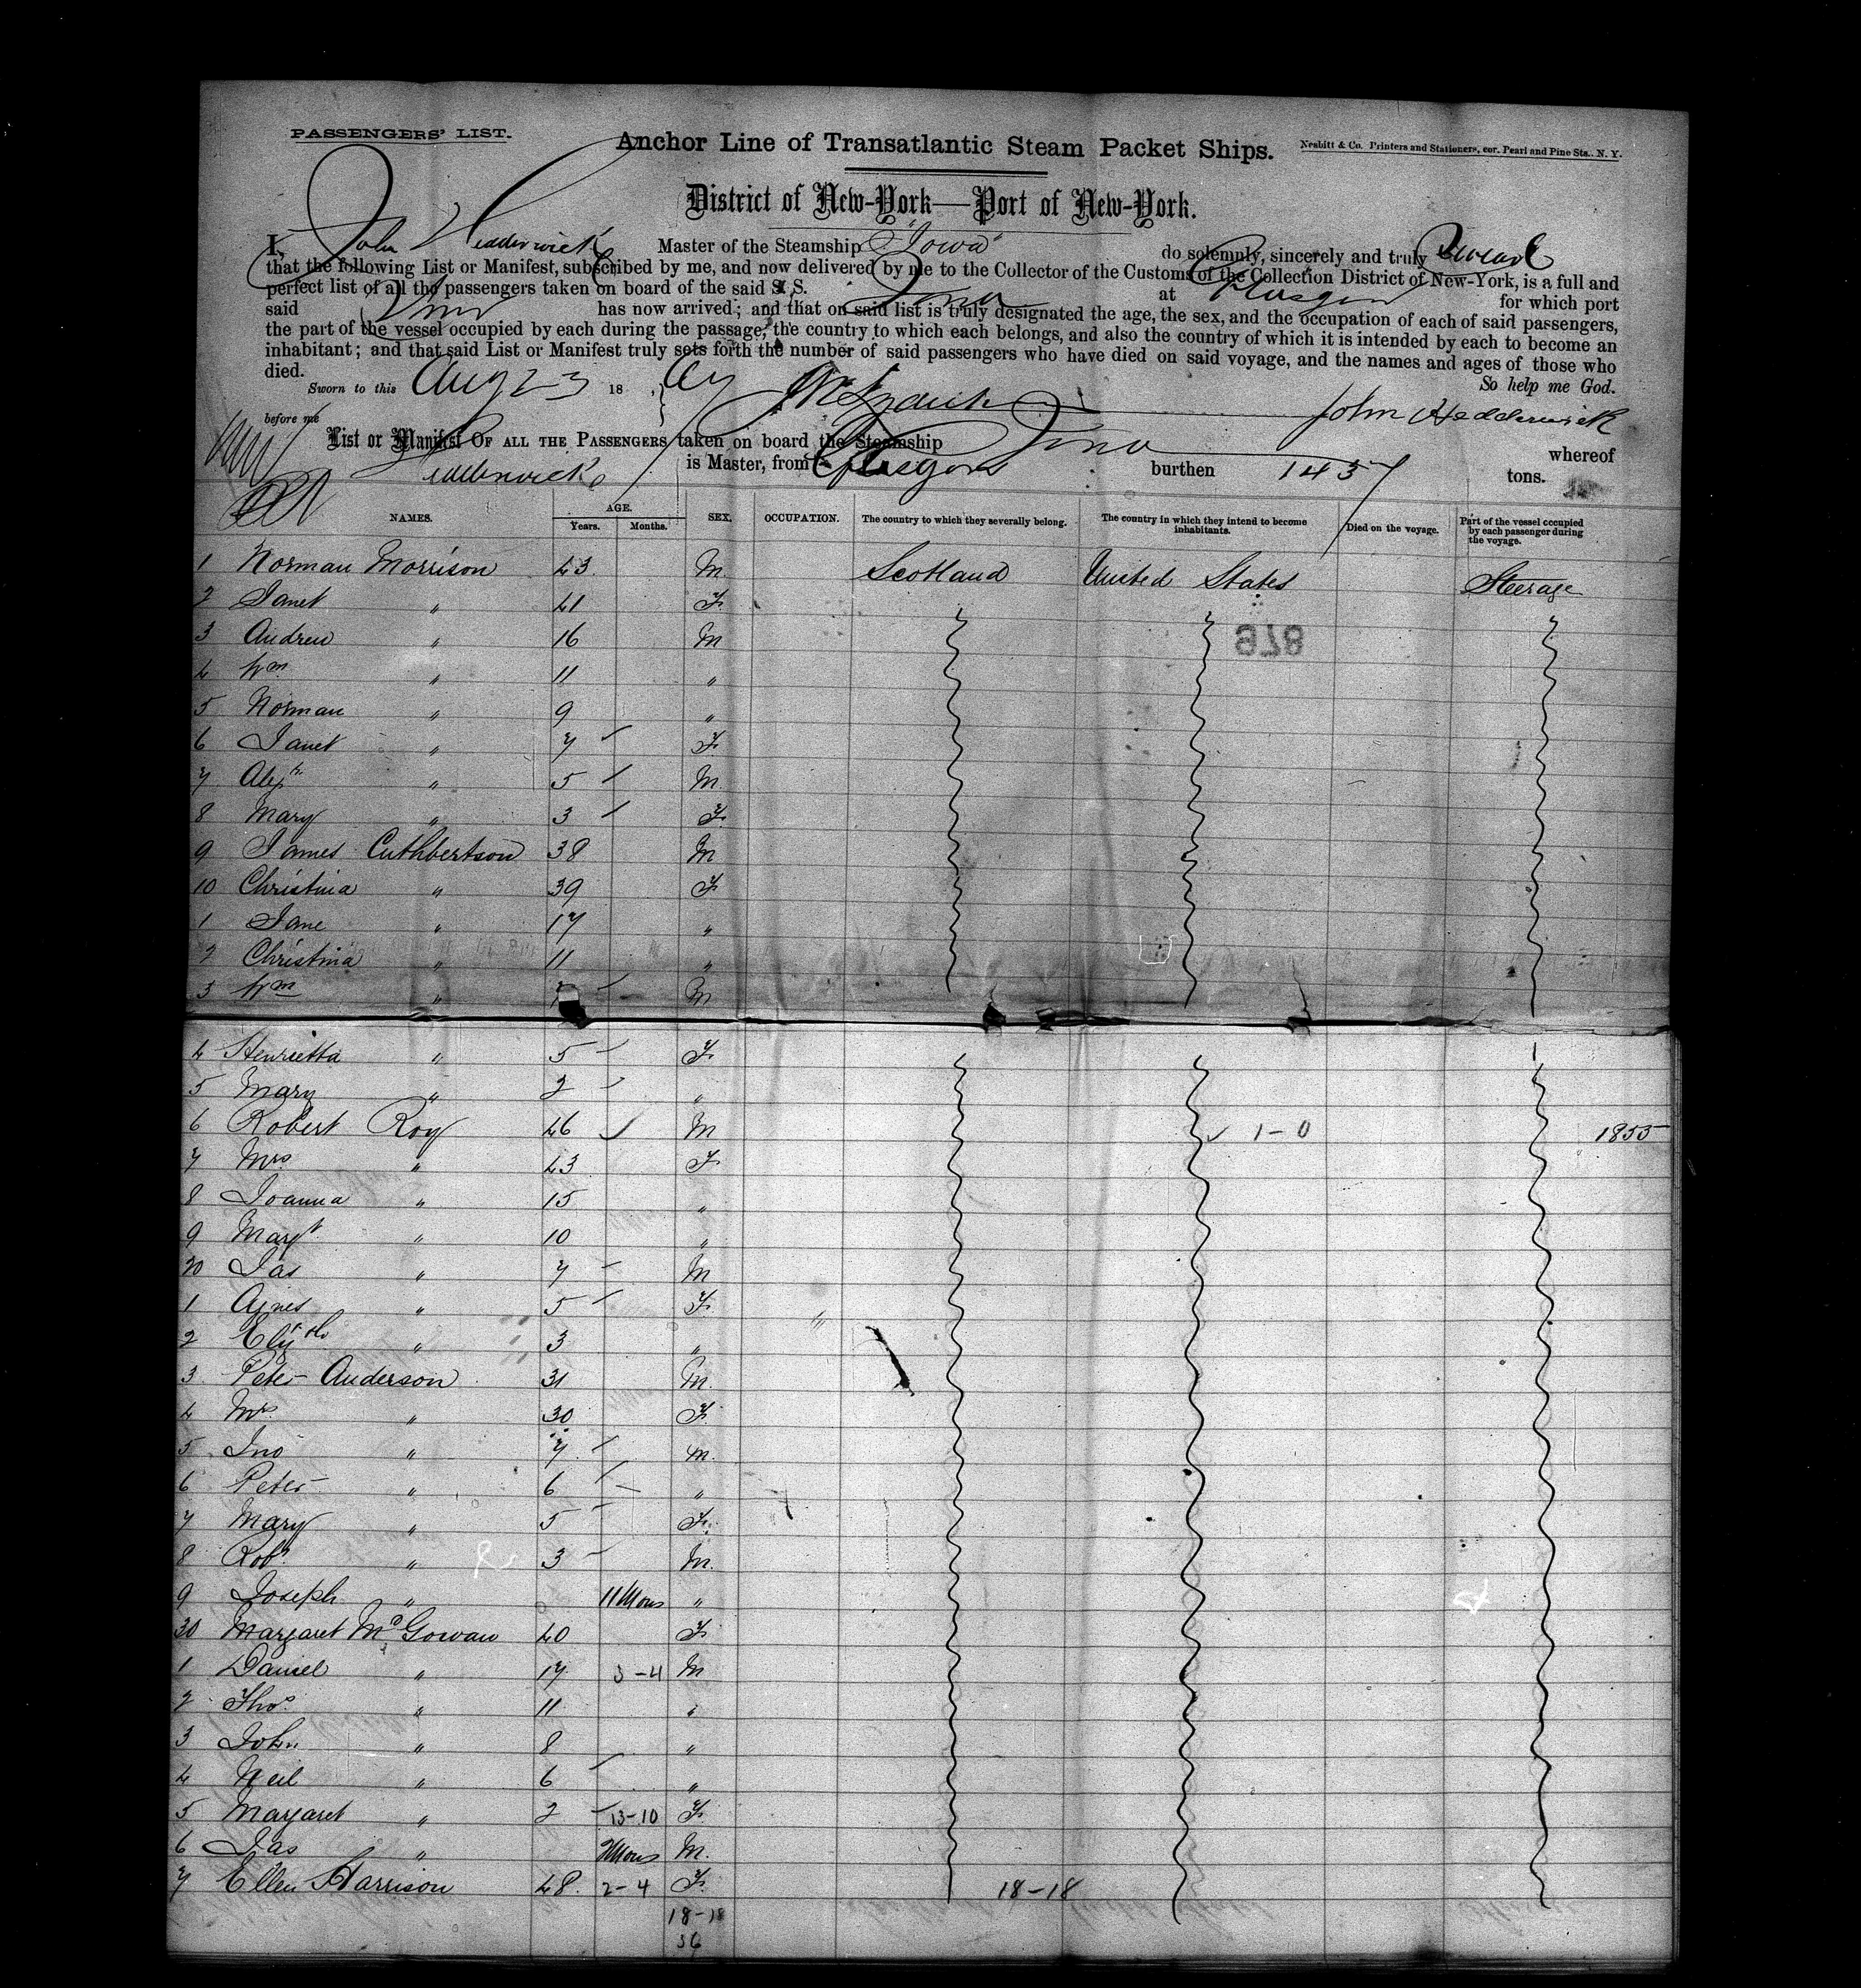 PASSENGERS' LIST.
Anchor Line of Transatlantic Steam Packet Ships.
Nesbitt & Co. Printers and Stationers, cor. Pearl and Pine Sts., N. Y.
District of New-York—Port of New-York.
I, John Hedderwick Master of the Steamship "Iowa" do solemnly, sincerely and truly Swear
that the following List or Manifest, subscribed by me, and now delivered by me to the Collector of the Customs of the Collection District of New-York, is a full and
perfect list of all the passengers taken on board of the said S. S. Iowa at Glasgow for which port
said has now arrived; and that on said list is truly designated the age, the sex, and the occupation of each of said passengers,
the part of the vessel occupied by each during the passage, the country to which each belongs, and also the country of which it is intended by each to become an
inhabitant; and that said List or Manifest truly sets forth the number of said passengers who have died on said voyage, and the names and ages of those who
died.
So help me God.
Sworn to this Aug 23 18
before me
John Hedderwick
List or Manifest OF ALL THE PASSENGERS taken on board the Steamship Iowa whereof
Hedderwick is Master, from Glasgow burthen 1437 tons.
NAMES. AGE. Years. Months. SEX. OCCUPATION. The country to which they severally belong. The country in which they intend to become inhabitants. Died on the voyage. Part of the vessel occupied by each passenger during the voyage.
1 Norman Morrison 43 M. Scotland United States Steerage
2 Janet " 41 F.
978
3 Andrew " 16 M
4 Wm " 11 "
5 Norman " 9 "
6 Janet " 7 F.
7 Alexr " 5 M.
8 Mary " 3 F.
9 James Cuthbertson 38 M
10 Christina " 39 F
1 Jane " 17 "
2 Christina " 11 "
3 Wm " M
4 Henrietta " 5 F.
5 Mary " 2 "
6 Robert Roy 46 M 1-0 1855
7 Mrs " 43 F
8 Joanna " 15 "
9 Margt " 10 "
20 Jas " 7 M
1 Agnes " 5 F.
2 Elizth " 3 "
3 Peter Anderson 31 M.
4 Mrs " 30 F.
5 Jno " 7 M.
6 Peter " 6 "
7 Mary " 5 F.
8 Robt " 3 M.
9 Joseph " 11 Mons "
30 Margaret McGowan 40 F.
1 Daniel " 17 3-4 M
2 Thos " 11 "
3 John " 8 "
4 Neil " 6 "
5 Margaret " 2 13-10 F.
6 Jas " Mons M.
7 Ellen Harrison 48. 2-4 F. 18-18
18-18
36